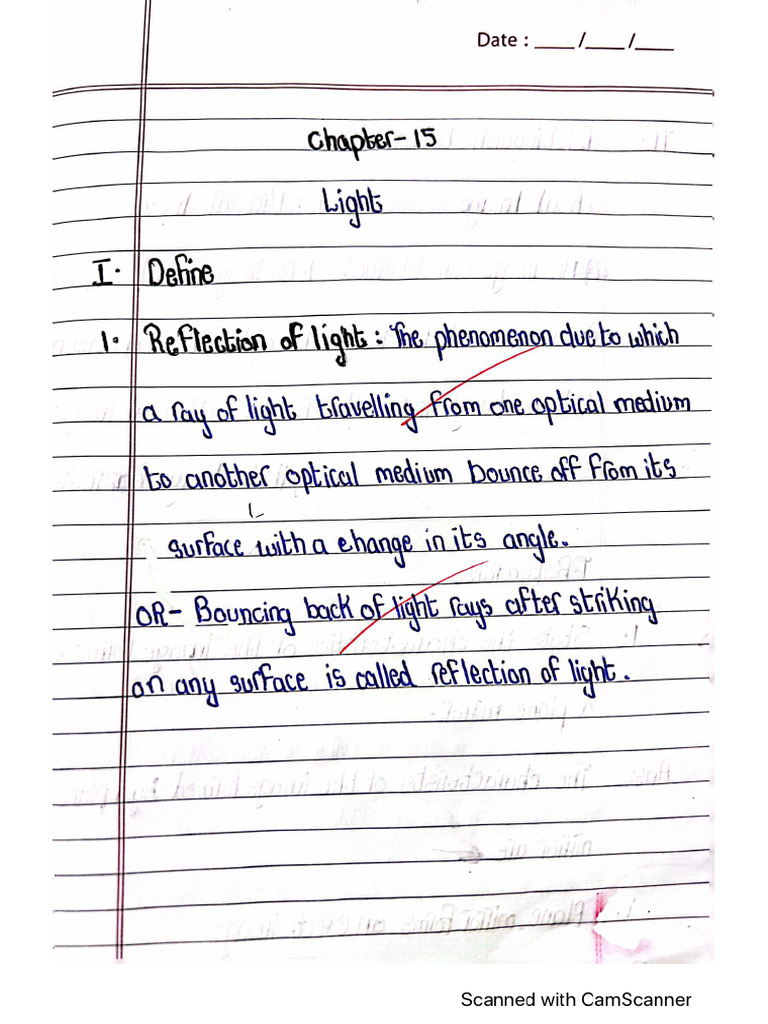 Date : ____ /____ /____
Chapter-15
Light
I. Define
1. Reflection of light: The phenomenon due to which
a ray of light travelling from one optical medium
to another optical medium bounce off from its
surface with a change in its angle.
OR- Bouncing back of light rays after striking
on any surface is called reflection of light.
Scanned with CamScanner